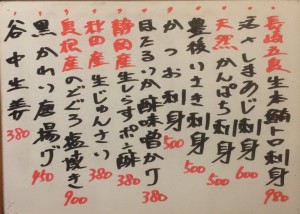 長崎五島生本鮪トロ刺身980
活〆しまあじ刺身600
天然かんぱち刺身500
豊後いさき刺身500
かつお刺身500
ほたるいか酢味噌かけ380
静岡産生しらすポン酢380
秋田産生じゅんさい380
島根産のどぐろ塩焼き900
黒かれい唐揚げ450
谷中生姜380